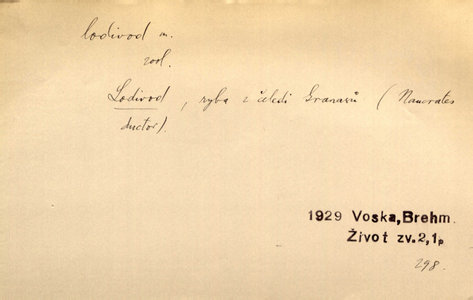 lodivod m.
zool.
Lodivod, ryba z čeledi Granasů (Naucrates
ductor).
1929 Voska, Brehm.
Život zv. 2, 1p
298.